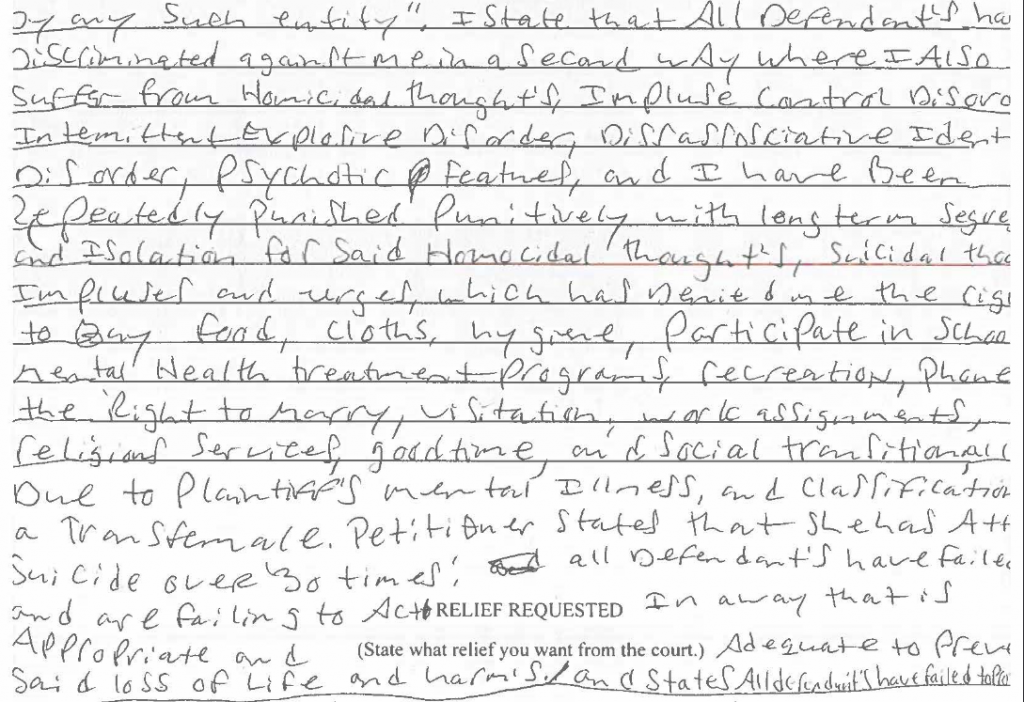 by any Such entity". I State that All Defendant's ha
Discriminated against me in a Second wAy where I Also
Suffer from Homicidal thought's, Impluse Control Disord
Intemittent Explosive Disorder, Dissassosciative Ident
Disorder, Psychotic Features, and I have Been
Repeatedly Punished Punitively with long term Segre
and Isolation for Said Homocidal thought's, Suicidal tho
Impluses and urges, which has Denied me the rig
to Bay food, cloths, hygiene, Participate in Schoo
mental Health treatment Programs, recreation, Phone
the Right to marry, visitation, work assignments,
religious Services, goodtime, and Social transitionall
Due to Plaintiff's mental Illness, and Classification
a Transfemale. Petitioner States that She has Att
Suicide over "30 times", all Defendant's have faile
and are failing to Act RELIEF REQUESTED In away that is
Appropriate and (State what relief you want from the court.) Adequate to Prev
Said loss of Life and harm's! and States All defendant's have failed to